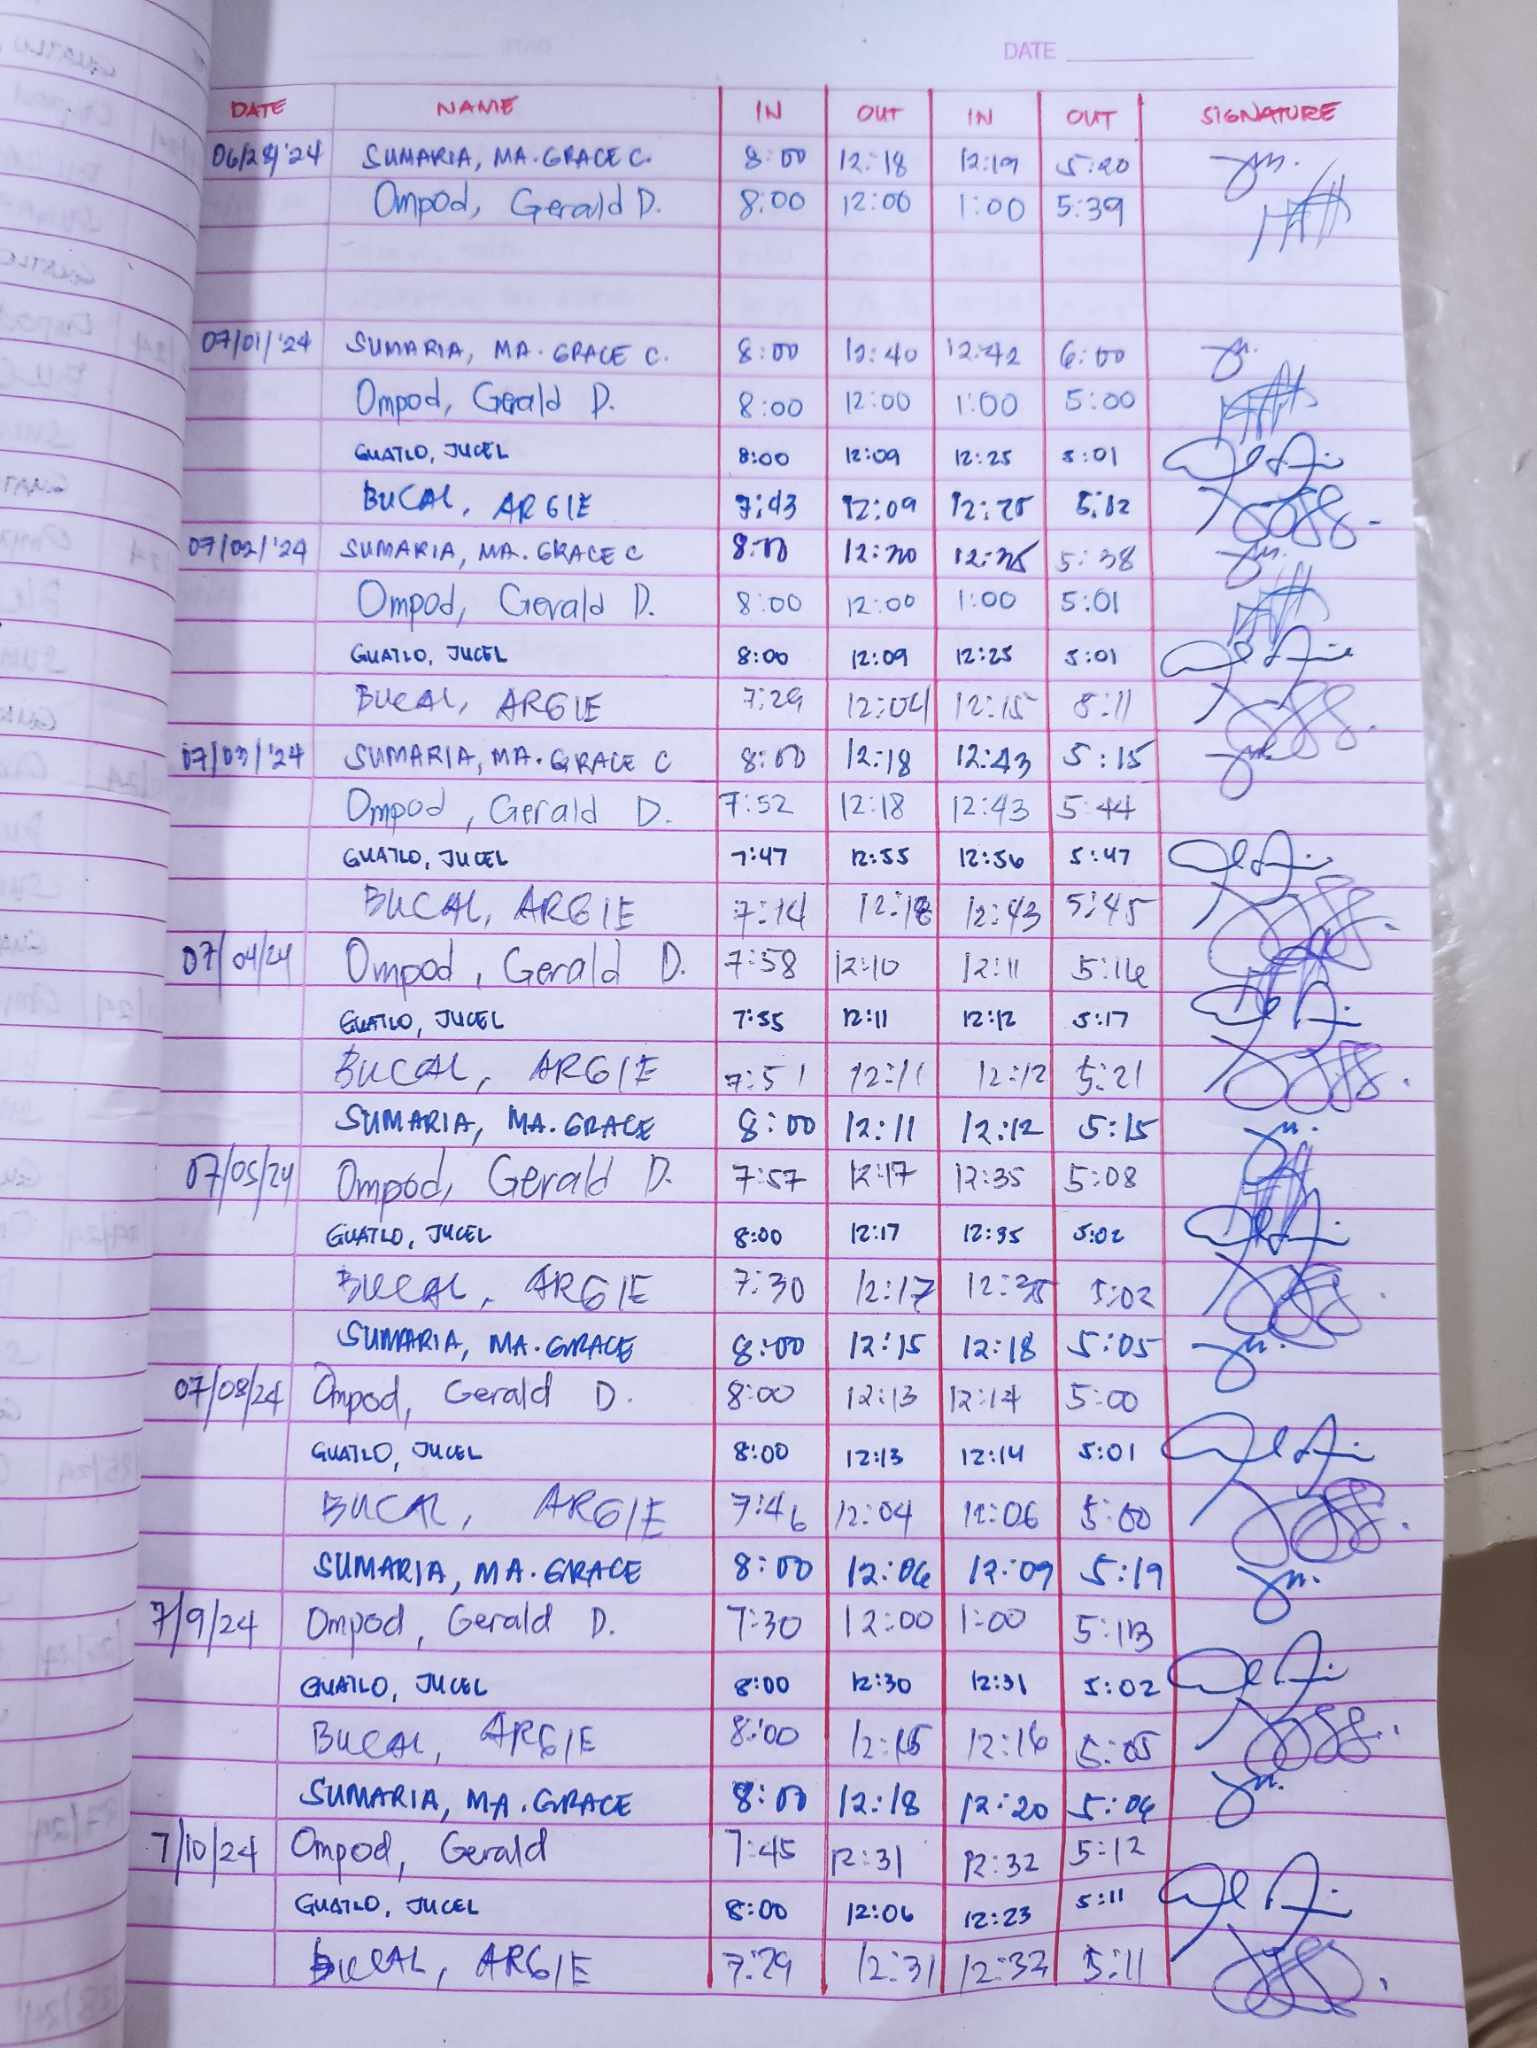 DATE
DATE NAME IN OUT IN OUT SIGNATURE
06/28/'24 SUMARIA, MA. GRACE C. 8:00 12:18 12:19 5:20
Ompod, Gerald D. 8:00 12:00 1:00 5:39
07/01/'24 SUMARIA, MA. GRACE C. 8:00 12:40 12:42 6:00
Ompod, Gerald D. 8:00 12:00 1:00 5:00
GUATLO, JUCEL 8:00 12:09 12:25 5:01
BUCAL, ARGIE 7:43 12:09 12:25 5:12
07/02/'24 SUMARIA, MA. GRACE C 8:00 12:30 12:35 5:38
Ompod, Gerald D. 8:00 12:00 1:00 5:01
GUATLO, JUCEL 8:00 12:09 12:25 5:01
BUCAL, ARGIE 7:29 12:04 12:15 5:11
07/03/'24 SUMARIA, MA. GRACE C 8:00 12:18 12:43 5:15
Ompod, Gerald D. 7:52 12:18 12:43 5:44
GUATLO, JUCEL 7:47 12:55 12:56 5:47
BUCAL, ARGIE 7:14 12:18 12:43 5:45
07/04/24 Ompod, Gerald D. 7:58 12:10 12:11 5:16
GUATLO, JUCEL 7:55 12:11 12:12 5:17
BUCAL, ARGIE 7:51 12:11 12:12 5:21
SUMARIA, MA. GRACE 8:00 12:11 12:12 5:15
07/05/24 Ompod, Gerald D. 7:57 12:17 12:35 5:08
GUATLO, JUCEL 8:00 12:17 12:35 5:02
BUCAL, ARGIE 7:30 12:17 12:35 5:02
SUMARIA, MA. GRACE 8:00 12:15 12:18 5:05
07/08/24 Ompod, Gerald D. 8:00 12:13 12:14 5:00
GUATLO, JUCEL 8:00 12:13 12:14 5:01
BUCAL, ARGIE 7:46 12:04 12:06 5:00
SUMARIA, MA. GRACE 8:00 12:06 12:09 5:19
7/9/24 Ompod, Gerald D. 7:30 12:00 1:00 5:13
GUATLO, JUCEL 8:00 12:30 12:31 5:02
BUCAL, ARGIE 8:00 12:15 12:16 5:05
SUMARIA, MA. GRACE 8:00 12:18 12:20 5:06
7/10/24 Ompod, Gerald 7:45 12:31 12:32 5:12
GUATLO, JUCEL 8:00 12:06 12:23 5:11
BUCAL, ARGIE 7:29 12:31 12:32 5:11